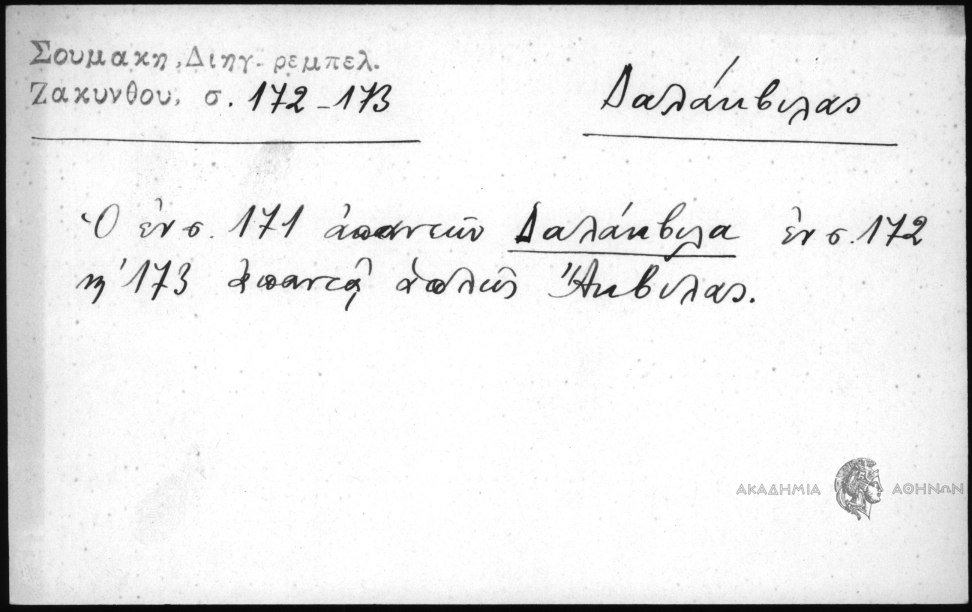 Σουμακη, Διηγ. ρεμπελ.
Ζακυνθου, σ. 172-173
Δαλάκβιλας
Ὁ ἐν σ. 171 ἀπαντῶν Δαλάκβιλα ἐν σ. 172
κ' 173 ἀπαντᾷ ἁπλῶς Ἄκβιλας.
ΑΚΑΔΗΜΙΑ ΑΘΗΝΩΝ